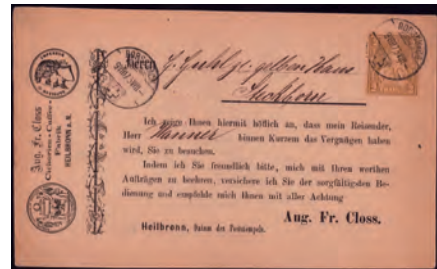 Herrn
gelben Haus
Steckborn
Aug. Fr. Closs
Cichorien-Caffee-
Fabrik
HEILBRONN A. N.
Ich zeige Ihnen hiermit höflich an, dass mein Reisender,
Herr Wanner binnen Kurzem das Vergnügen haben
wird, Sie zu besuchen.
Indem ich Sie freundlich bitte, mich mit Ihren werthen
Aufträgen zu beehren, versichere ich Sie der sorgfältigsten Be-
dienung und empfehle mich Ihnen mit aller Achtung
Aug. Fr. Closs.
Heilbronn, Datum des Poststempels.